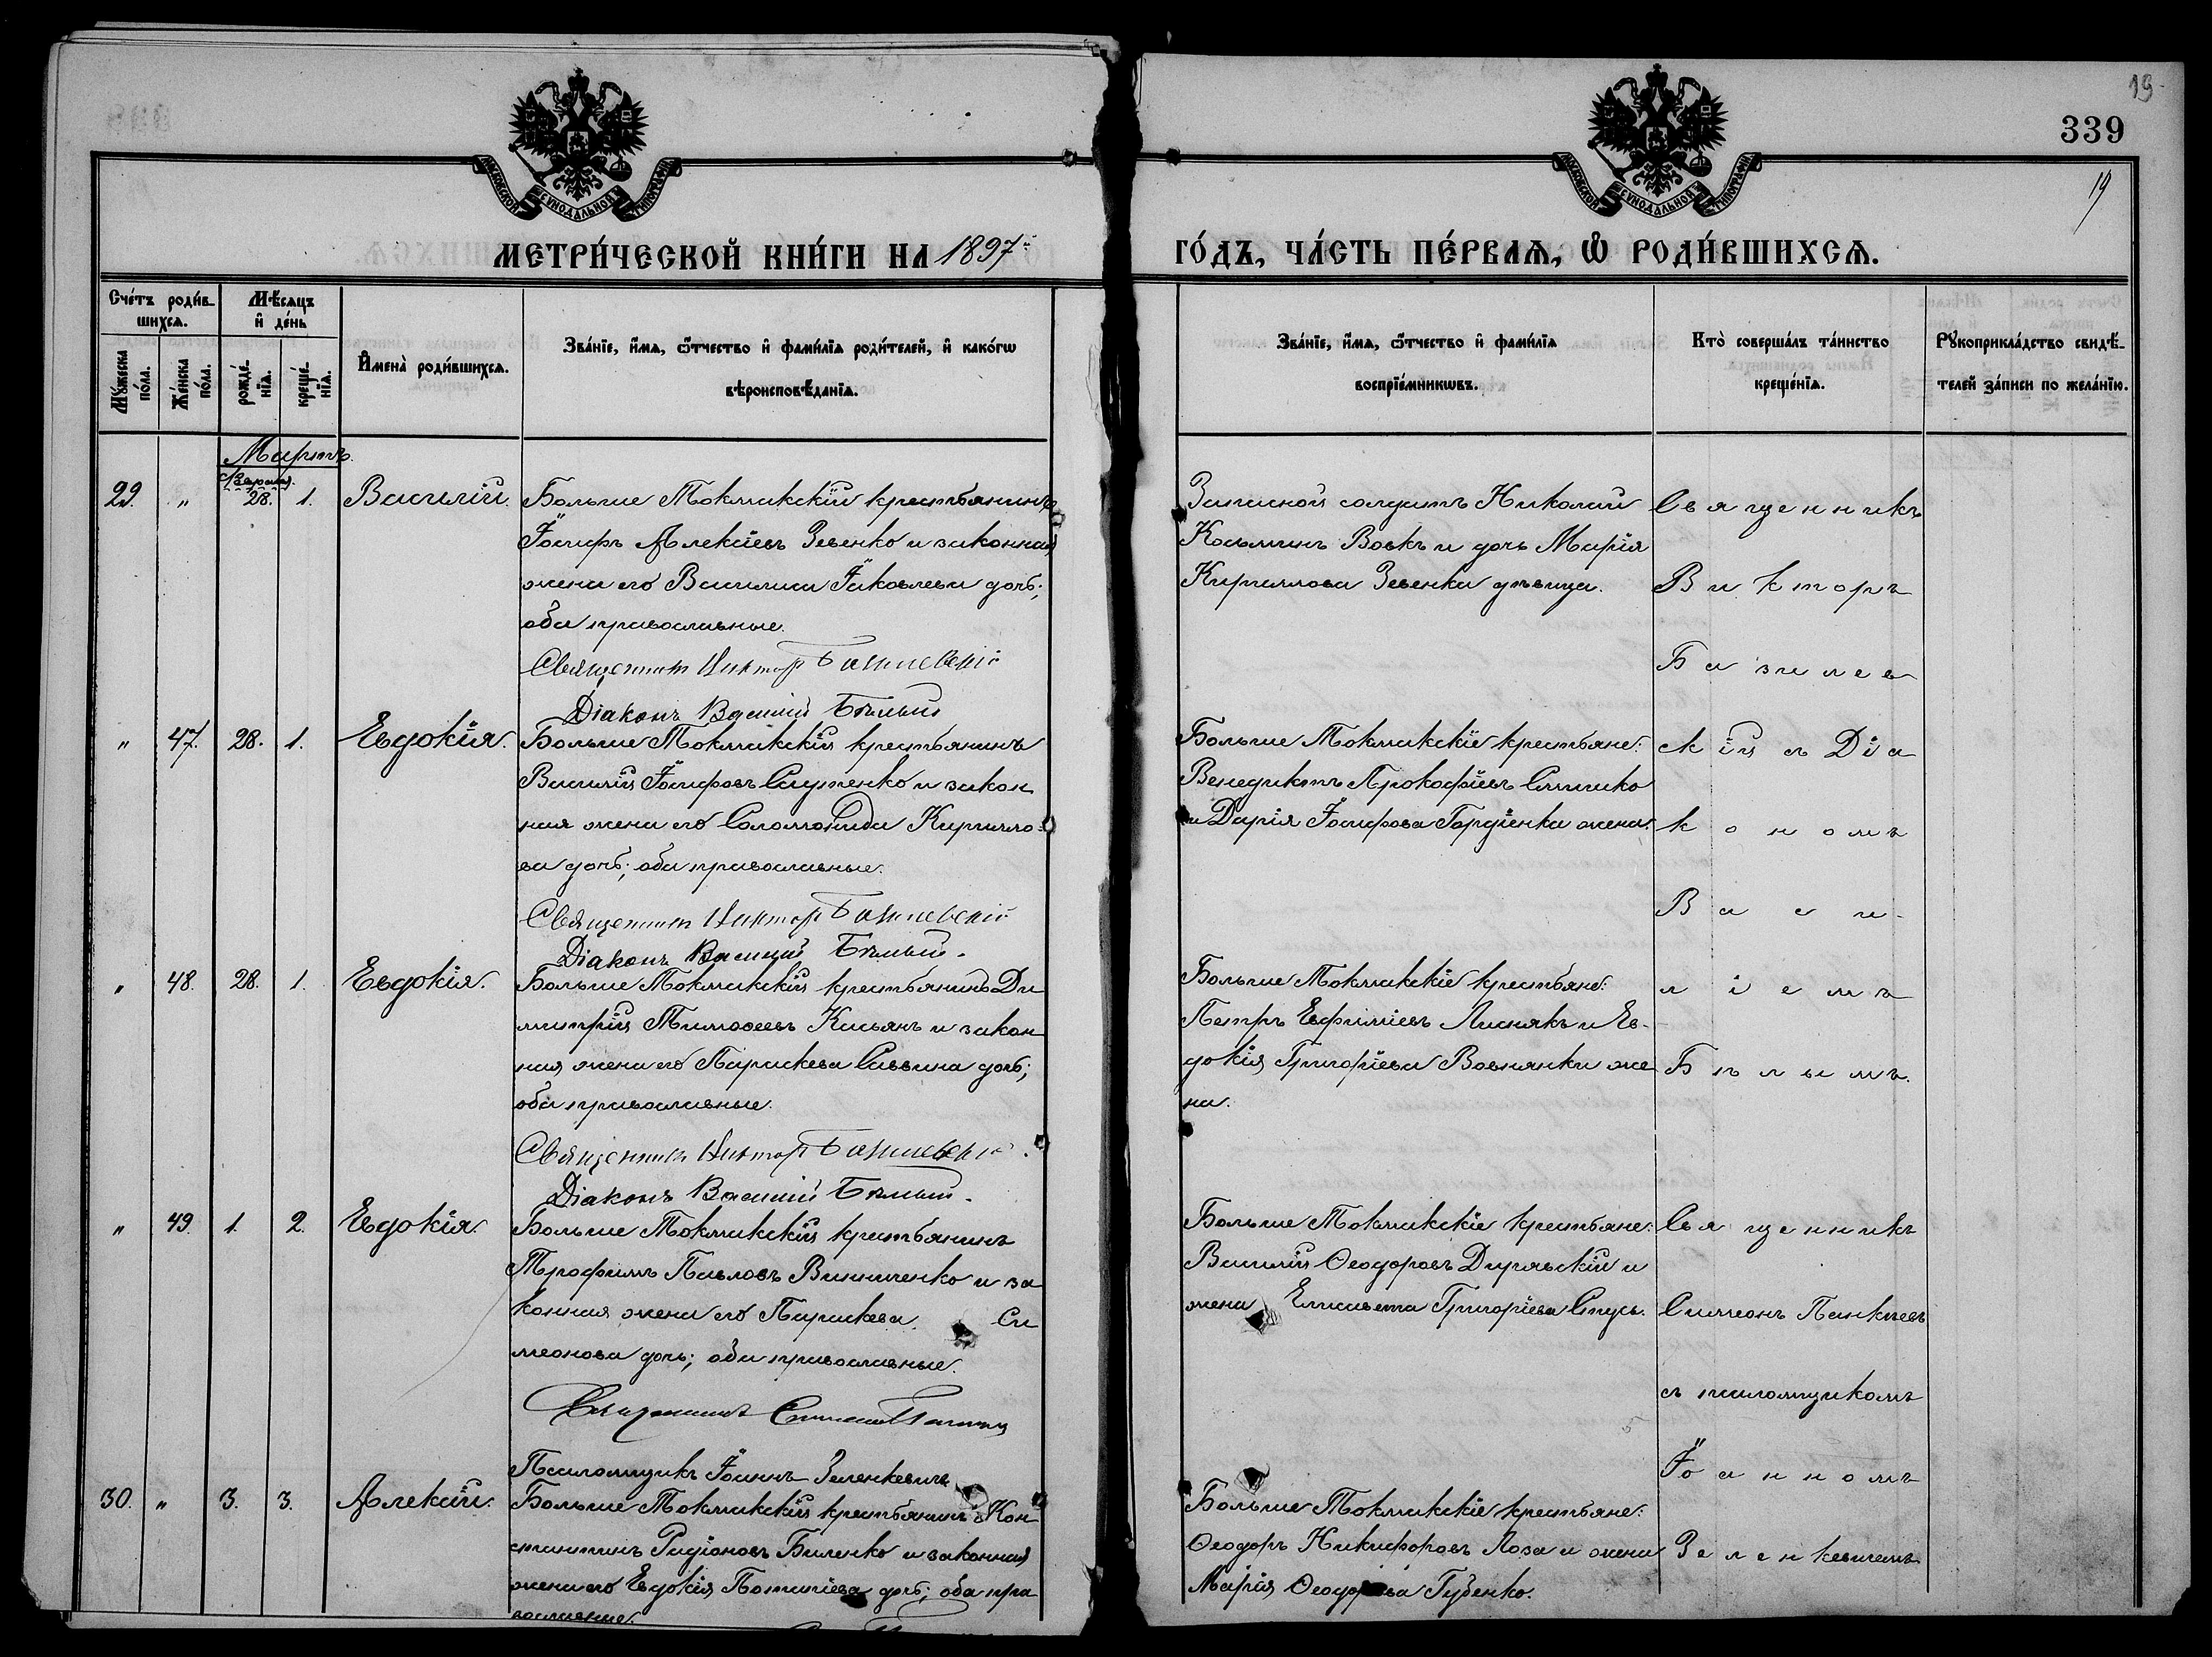 19
339
19
МОСКОВСКОЙ СУНОДАЛЬНОЙ ТИПОГРАФІИ
МОСКОВСКОЙ СУНОДАЛЬНОЙ ТИПОГРАФІИ
МЕТРИ́ЧЕСКОЙ КНИ́ГИ НА 1897й
ГО́ДЪ, ЧА́СТЬ ПЕ́РВАѦ, Ѡ҆ РОДИ́ВШИХСѦ.
Сче́тъ роди́в-
шихсѧ.
Мꙋ́жеска по́ла.
Же́нска по́ла.
Мѣ́сѧцъ
и҆ де́нь
рожде́-
нїѧ.
креще́-
нїѧ.
И҆мена̀ роди́вшихсѧ.
Зва́нїе, и҆́мѧ, ѻ҆́тчество и҆ фами́лїѧ роди́телей, и҆ како́гѡ
вѣроисповѣ́данїѧ.
Зва́нїе, и҆́мѧ, ѻ҆́тчество и҆ фами́лїѧ
воспрїе́мникѡвъ.
Кто̀ соверша́лъ та́инство
креще́нїѧ.
Рꙋкоприкла́дство свидѣ́-
телей за́писи по жела́нїю.
Мартъ.
Февраля.
29. " 28. 1. Василій.
Больше Токмакскій крестьянинъ
Іосифъ Алексіевъ Зевенко и законная
жена его Василиса Іаковлева дочь;
оба православные.
Священникъ Викторъ Базилевскій
Діаконъ Василій Бѣлый
Запасной солдатъ Николай
Косьминъ Вовкъ и дочь Марія
Кириллова Зевенка дѣвица.
Священникъ
Викторъ
Базилев
скій съ Діа
кономъ
Васи-
ліемъ
Бѣлымъ.
" 47. 28. 1. Евдокія.
Больше Токмакскій крестьянинъ
Василій Іосифовъ и закон
ная жена его Соломонида Кирилло-
ва дочь; оба православные.
Священникъ Викторъ Базилевскій
Діаконъ Василій Бѣлый.
Больше Токмакскіе крестьяне:
Венедиктъ Прокофіевъ
и Дарія Іосифова Гордіенка жена.
" 48. 28. 1. Евдокія.
Больше Токмакскій крестьянинъ Ди
митрій Тимоѳеевъ Касьянъ и закон
ная жена его Параскева Саввина дочь;
оба православные.
Священникъ Викторъ Базилевскій.
Діаконъ Василій Бѣлый.
Больше Токмакскіе крестьяне:
Петръ Евфиміевъ Лиснякъ и Ев-
докія Григоріева Вовнянка же
на.
" 49. 1. 2. Евдокія.
Больше Токмакскій крестьянинъ
Трофимъ Павловъ Винниченко и за
конная жена его Параскева Си
меонова дочь; оба православные.
Священникъ Симеонъ
Псаломщикъ Іоаннъ Зеленкевичъ
Больше Токмакскіе крестьяне:
Василій Ѳеодоровъ и
жена Елисавета Григоріева
Священникъ
Симеонъ
съ псаломщикомъ
Іоанномъ
Зеленкевичемъ
30. " 3. 3. Алексій.
Больше Токмакскій крестьянинъ Кон
стантинъ Родіоновъ Биленко и законная
жена его Евдокія Потапіева дочь; оба пра
вославные.
Больше Токмакскіе крестьяне:
Ѳеодоръ Никифоровъ Лоза и жена
Марія Ѳеодорова Губенко.